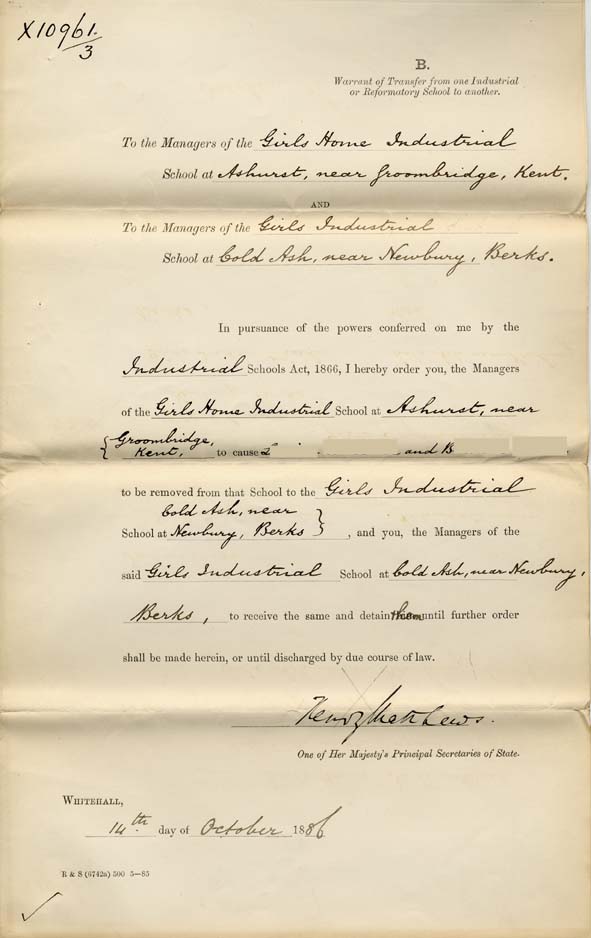 X10961.
3
B.
Warrant of Transfer from one Industrial
or Reformatory School to another.
To the Managers of the Girls Home Industrial
School at Ashurst, near Groombridge, Kent.
AND
To the Managers of the Girls Industrial
School at Cold Ash, near Newbury, Berks.
In pursuance of the powers conferred on me by the
Industrial Schools Act, 1866, I hereby order you, the Managers
of the Girls Home Industrial School at Ashurst, near
Groombridge,
Kent, to cause and B
to be removed from that School to the Girls Industrial
Cold Ash, near
School at Newbury, Berks , and you, the Managers of the
said Girls Industrial School at Cold Ash, near Newbury,
Berks, to receive the same and detain them until further order
shall be made herein, or until discharged by due course of law.
Henry Matthews.
One of Her Majesty's Principal Secretaries of State.
WHITEHALL,
14th day of October 1886
R & S (6742a) 500 5—85